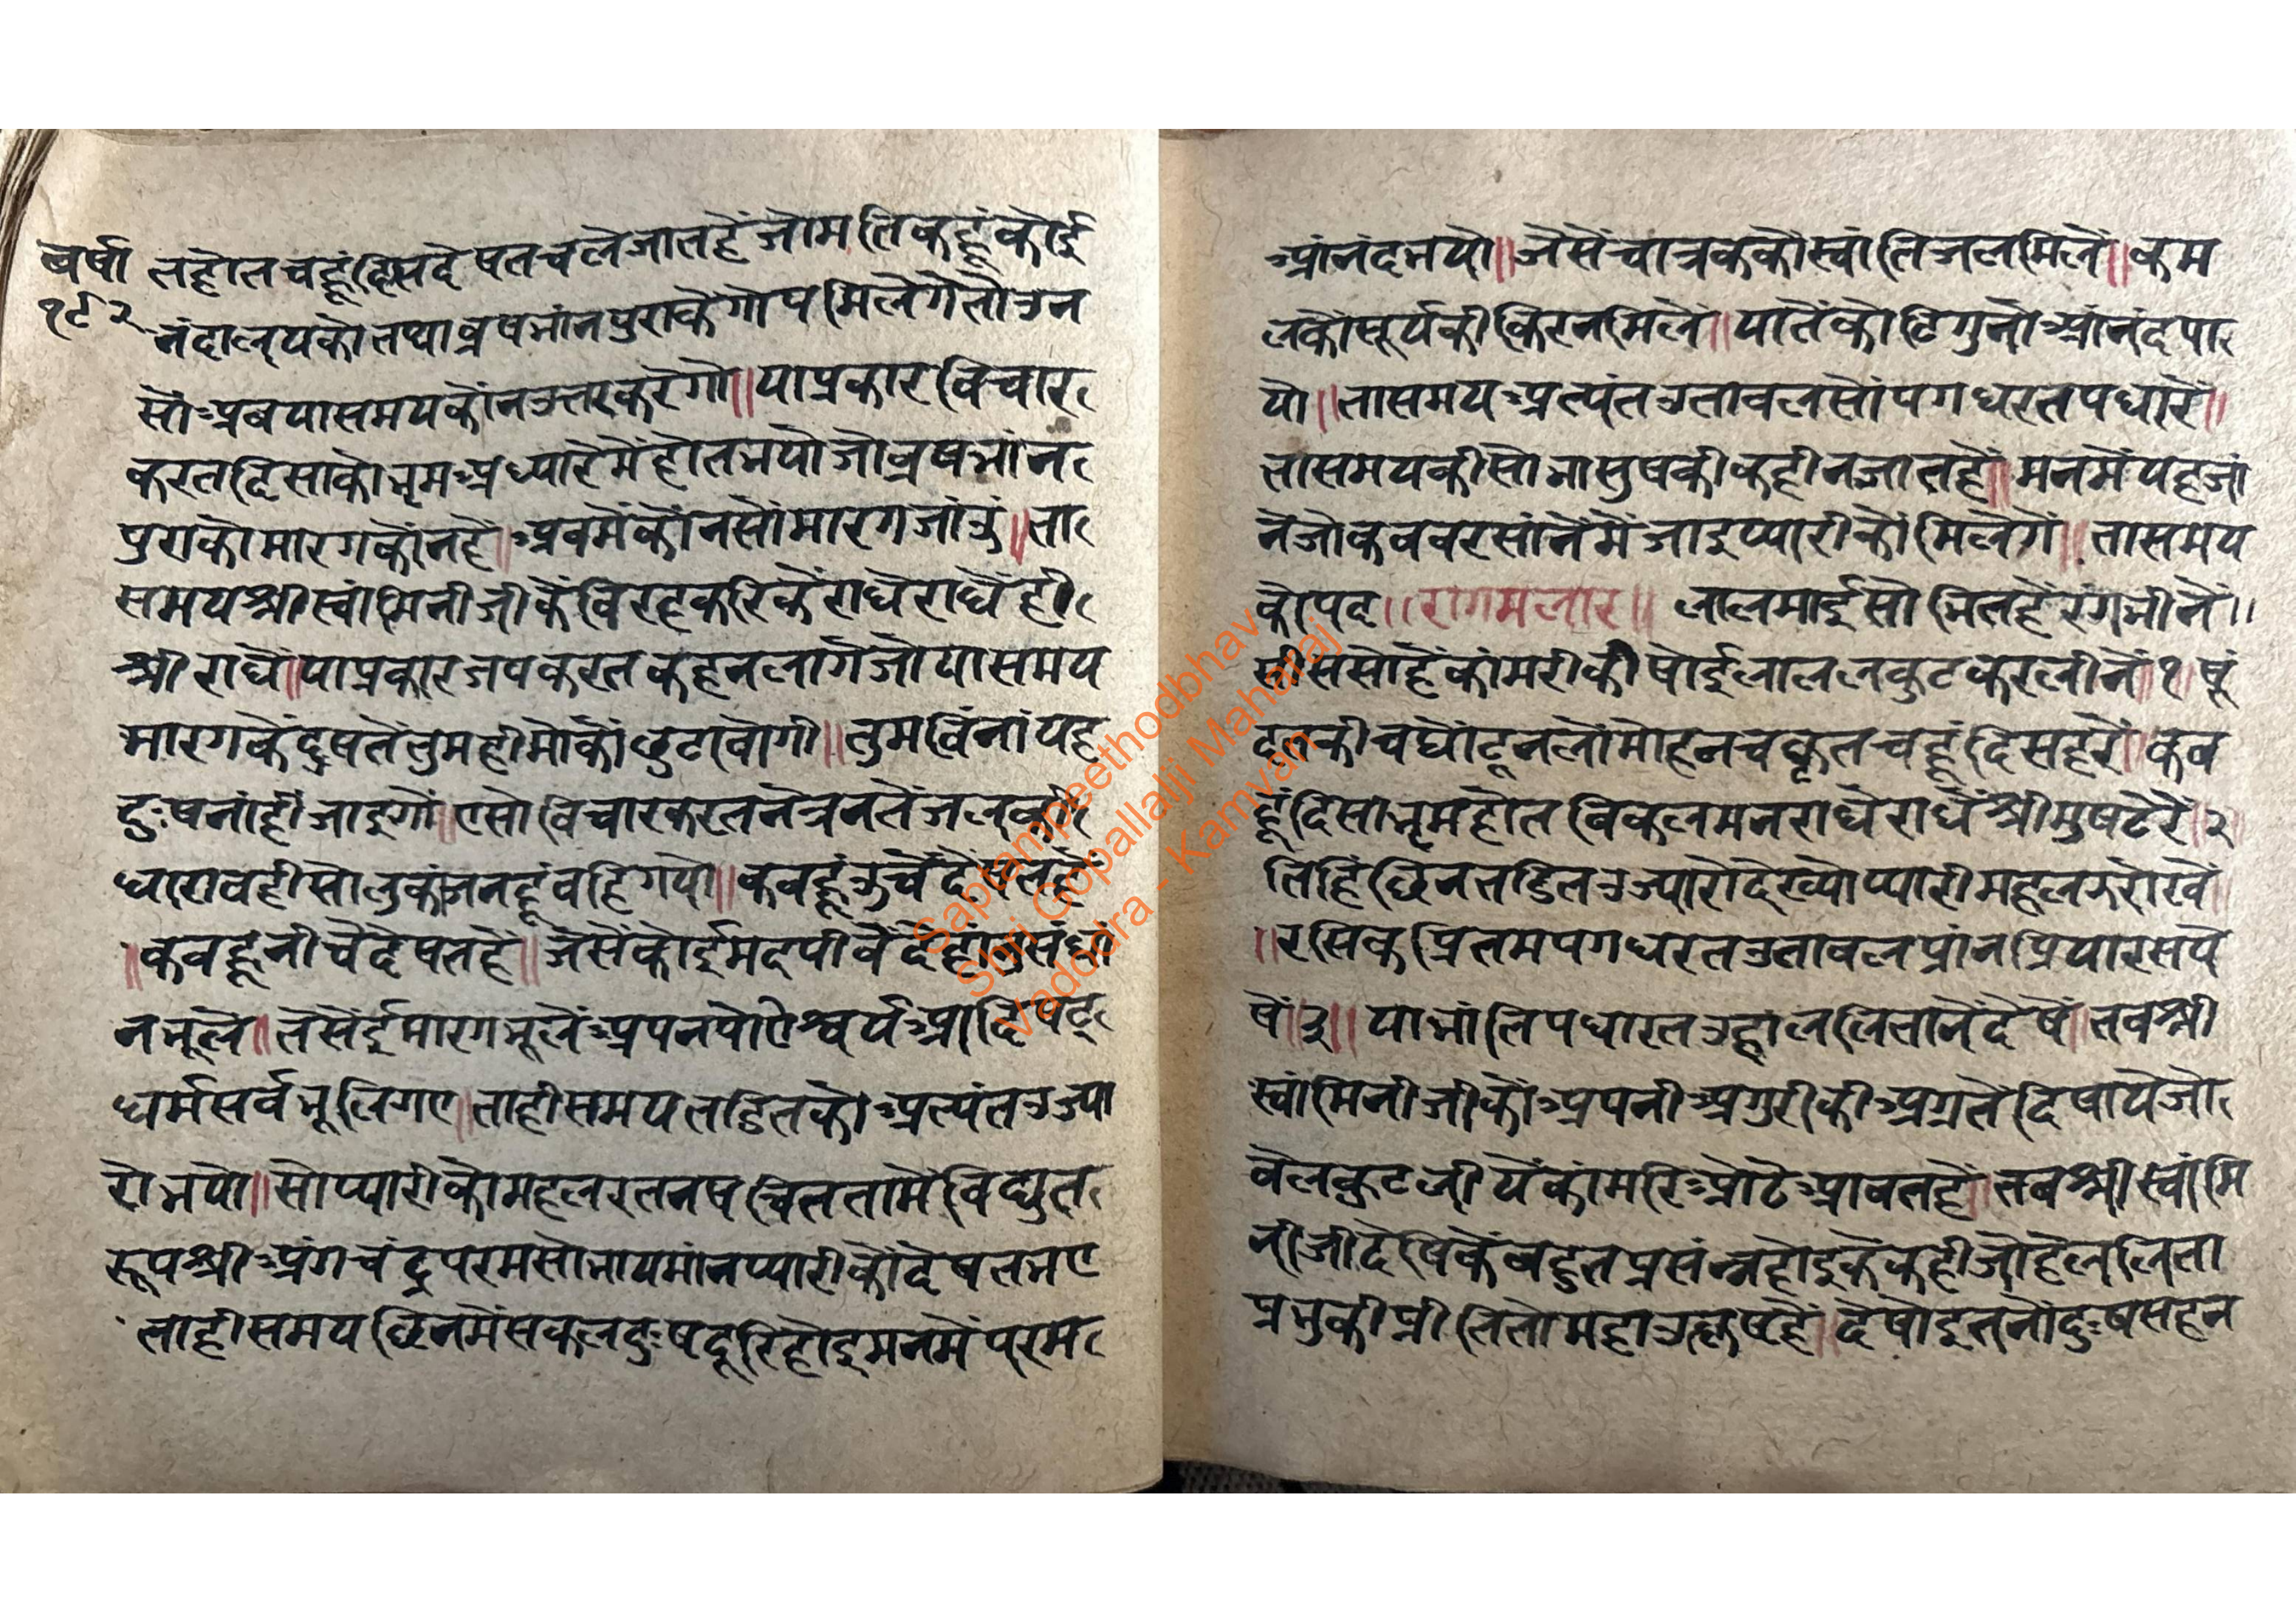 वर्षा
१९२
तहोतचहूंदिसदेषतचलेजातहैंजोमतिकहूंकोई
नंदालयकोतथाव्रषभांनपुराकेगोपमिलेगेतोउन
सोंअबयासमयकोंनउत्तरकरेगो॥याप्रकारविचार
करतदिसाकोभ्रमअंध्यारेमेंहोतभयोजोव्रषभांन
पुराकोमारगकोंनहै॥अबमेंकोंनसोंमारगजांउं॥ता
समयश्रीस्वांमिनीजीकेंविरहकरिकेंराधेराधेंही
श्रीराधे॥याप्रकारजपकरतकहनलागेजोयासमय
मारगकेंदुषतेंतुमहीमोकोंछुटावोगी॥तुमविंनांयह
दुःषनांहींजाइगो॥एसोविचारकरतनेत्रनतेंजलकी
धारावहीसोतुकांजनहूंवहिगयो॥कबहूंउंचेंदेषतहें
॥कबहूनीचेंदेषतहें॥जेसेंकोईमदपीवेंदेहांनुसंधां
नभूले॥तेसेंईमारगभूलेंअपनपोऐश्वर्यआदिषट्
धर्मसर्वभूलिगए॥ताहीसमयतडितकोअत्यंतउज्या
रोभयो॥सोप्यारीकोमहलरतनषचिततामेंविद्युत
रूपश्रीअंगचंद्रपरमसोभायमांनप्यारीकोंदेषतभए
ताहीसमयछिनमेंसकलदुःषदूरिहोइमनमेंपरम
आंनंदभयो॥जेसेंचात्रककोंस्वांतिजलमिलें॥कम
लकोंसूर्यकीकिरनमिलें॥यातेंकोटिगुनोआंनंदपा
यो॥तासमयअत्यंतउतावलसोंपगधरतपधारें॥
तासमयकीसोभासुषकीकहीनजातहें॥मनमेंयहजां
नेजोकबबरसांनेंमेंजाइप्यारीकोंमिलेगें॥तासमय
कोपद॥रागमलार॥लालमाईसोभितहेंरंगभीनें॥
सीससोहेंकांमरीकीषोईलाललकुटकरलीनें॥१॥षूं
दतकीचघोंटूनलोंमोहनचकृतचहूंदिसहेरें॥कब
हूंदिसाभ्रमहोतविकलमनराधेराधेंश्रीमुषटेरें॥२॥
तिहिंछिनतडितउज्यारोदेख्योप्यारीमहलझरोखें॥
॥रसिकप्रितमपगधरतउतावलप्रांनप्रियारसपे
षें॥३॥याभांतिपधारतउहांललितानेंदेषें॥तबश्री
स्वांमिनीजीकोंअपनीअगुरीकीअग्रतेंदिषायेजो
वेलकुटलीयेंकांमरिओटेआवतहें॥तबश्रीस्वांमि
नीजीदेषिकेंबहुतप्रसंन्नहोइकेंकहीजोहेललिता
प्रभुकीप्रीतितोमहाउत्कृषहें॥देषोइतनोंदुःषसहन